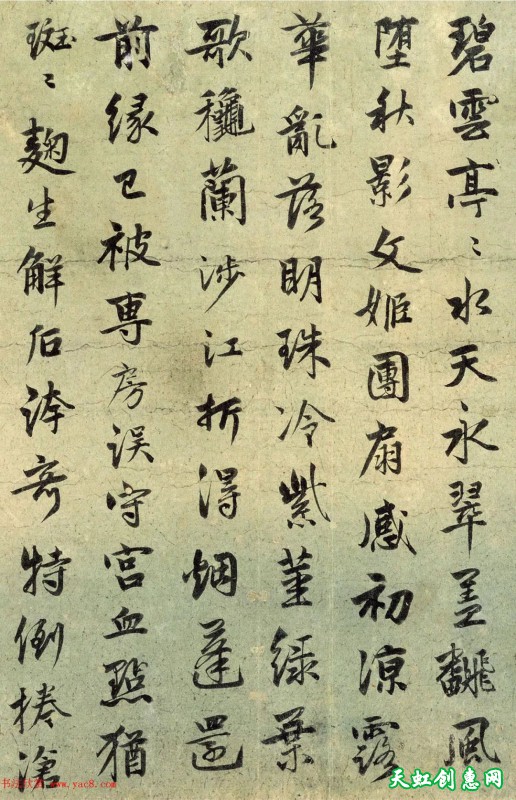 碧雲亭〻水天永翠盖飜風
堕秋影文姬團扇感初凉露
華亂落明珠冷紫莖緑葉
歌穐蘭涉江折得烟蓬還
前緣已被專房误守宫血點猶
斑〻麴生解后誇奇特倒捲滄
书法欣赏 www.yac8.com
天虹创惠网